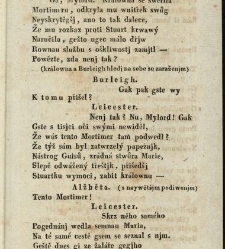 Mortimeru, odkryla mu wnitřek swůg
Neyskrytěgj, ano to tak dalece,
Že mu rozkaz proti Stuart krwawý
Naručila, gešto ngec milo držjw
Rownau službu s ošklivostj zamjtl —
Powězte, zda nenj tak?
(králowna a Burleigh hledj na sebe se zaraženjm)
Burleigh.
Gak pak gste wy
K tomu přišel?
Leicester.
Nenj tak? Nu, Mylord! Gak
Gste s tisjci oči swými newiděl,
Že wás tento Mortimer tam podwedl?
Že týž sám byl zatwrzelý papežnjk,
Nástrog Guisů, zrádná stwůra Marie,
Slepě odwážený třeštjk, přišedší
Stuartku wymoci, zabit králownu —
Alžběta. (s neywětšjm podiwenjm)
Tento Mortimer!
Leicester.
Skrz něho samého
Pogednánj wedla semnau Maria,
Na té samé cestě gsem se seznal s njm.
Geště dnes gi ze žaláře gegjho